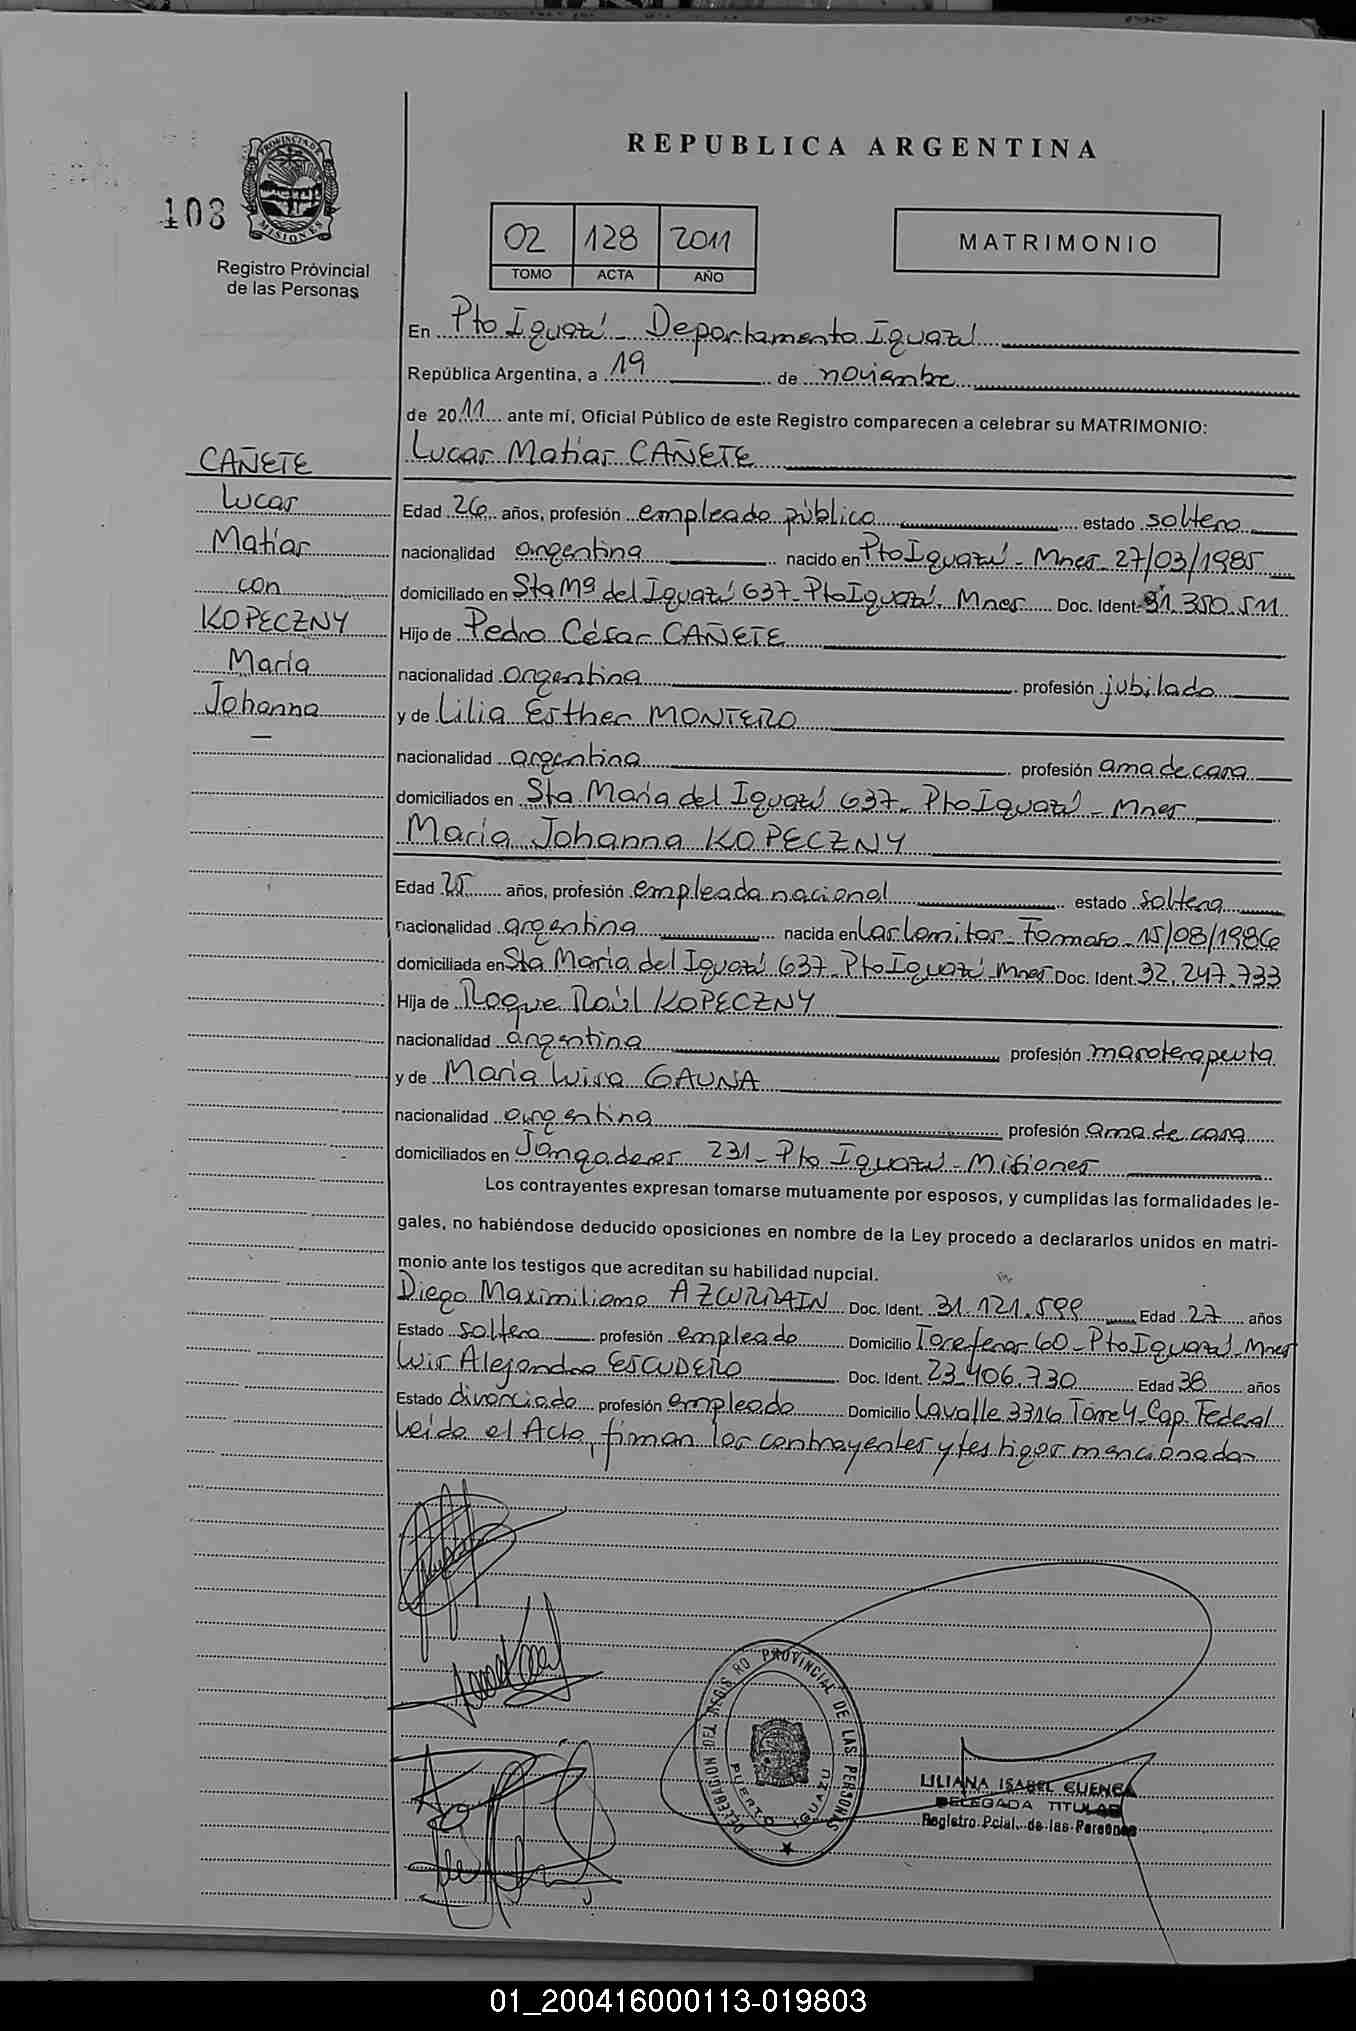 REPUBLICA ARGENTINA
PROVINCIA DE MISIONES
103
Registro Provincial
de las Personas
02 128 2011
TOMO ACTA AÑO
MATRIMONIO
En Pto Iguazú - Departamento Iguazú
República Argentina, a 19 de noviembre
de 2011 ante mí, Oficial Público de este Registro comparecen a celebrar su MATRIMONIO:
CAÑETE
Lucas
Matías
con
KOPECZNY
María
Johanna
Lucas Matías CAÑETE
Edad 26 años, profesión empleado público estado soltero
nacionalidad argentina nacido en Pto Iguazú - Mnes - 27/03/1985
domiciliado en Sta Mª del Iguazú 637 - Pto Iguazú - Mnes Doc. Ident. 31.350.511
Hijo de Pedro César CAÑETE
nacionalidad argentina profesión jubilado
y de Lilia Esther MONTERO
nacionalidad argentina profesión ama de casa
domiciliados en Sta María del Iguazú 637 - Pto Iguazú - Mnes
María Johanna KOPECZNY
Edad 25 años, profesión empleada nacional estado soltera
nacionalidad argentina nacida en Las Lomitas - Formosa - 15/08/1986
domiciliada en Sta María del Iguazú 637 - Pto Iguazú - Mnes Doc. Ident. 32.247.733
Hija de Roque Raúl KOPECZNY
nacionalidad argentina profesión masoterapeuta
y de María Luisa GAUNA
nacionalidad argentina profesión ama de casa
domiciliados en Jangaderos 231 - Pto Iguazú - Misiones
Los contrayentes expresan tomarse mutuamente por esposos, y cumplidas las formalidades le-
gales, no habiéndose deducido oposiciones en nombre de la Ley procedo a declararlos unidos en matri-
monio ante los testigos que acreditan su habilidad nupcial.
Diego Maximiliano AZCURRAIN Doc. Ident. 31.121.599 Edad 27 años
Estado soltero profesión empleado Domicilio 60 - Pto Iguazú - Mnes
Luis Alejandro ESCUDERO Doc. Ident. 23.406.730 Edad 38 años
Estado divorciado profesión empleado Domicilio Lavalle 3316 Torre 4 - Cap. Federal
Leída el Acta, firman los contrayentes y testigos mencionados
DELEGACION DEL REGISTRO PROVINCIAL DE LAS PERSONAS
PUERTO IGUAZU
LILIANA ISABEL CUENCA
DELEGADA TITULAR
Registro Pcial. de las Personas
01_200416000113-019803